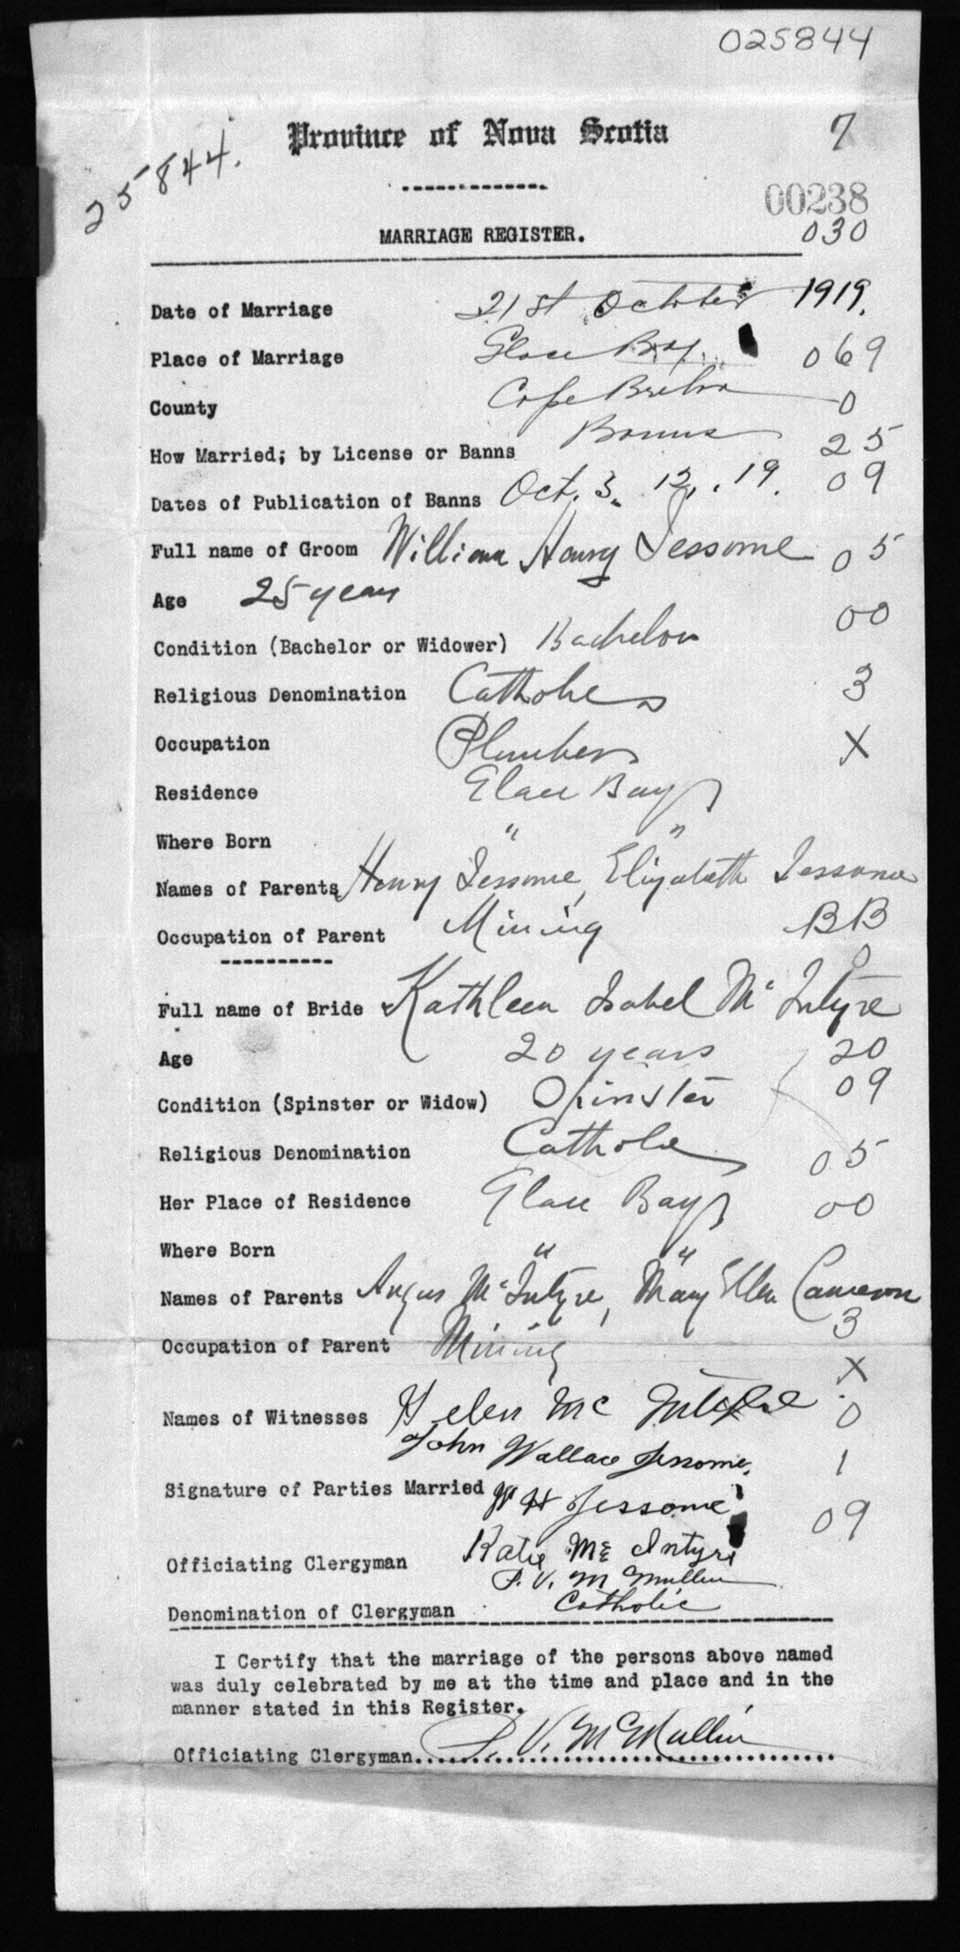 025844
Province of Nova Scotia 7
25844.
00238
MARRIAGE REGISTER. 030
Date of Marriage 21st October 1919.
Place of Marriage Glace Bay. 069
County Cape Breton 0
How Married; by License or Banns Banns 25
Dates of Publication of Banns Oct. 3. 12,. 19. 09
Full name of Groom William Henry Jessome 05
Age 25 years
00
Condition (Bachelor or Widower) Bachelor
Religious Denomination Catholic 3
Occupation Plumber X
Residence Glace Bay
Where Born " "
Names of Parents Henry Jessome, Elizabeth Jessome
Occupation of Parent Mining BB
0
Full name of Bride Kathleen Isabel Mc Intyre
Age 20 years 20
Condition (Spinster or Widow) Spinster 09
Religious Denomination Catholic 05
Her Place of Residence Glace Bay 00
Where Born " "
Names of Parents Angus Mc Intyre, Mary Ellen Cameron
3
Occupation of Parent Mining
X
Names of Witnesses Helen Mc Intyre 0
John Wallace Jessome. 1
Signature of Parties Married W H Jessome
09
Katie Mc Intyre
Officiating Clergyman P. V. McMullin
Denomination of Clergyman Catholic
I Certify that the marriage of the persons above named
was duly celebrated by me at the time and place and in the
manner stated in this Register.
Officiating Clergyman P. V. McMullin